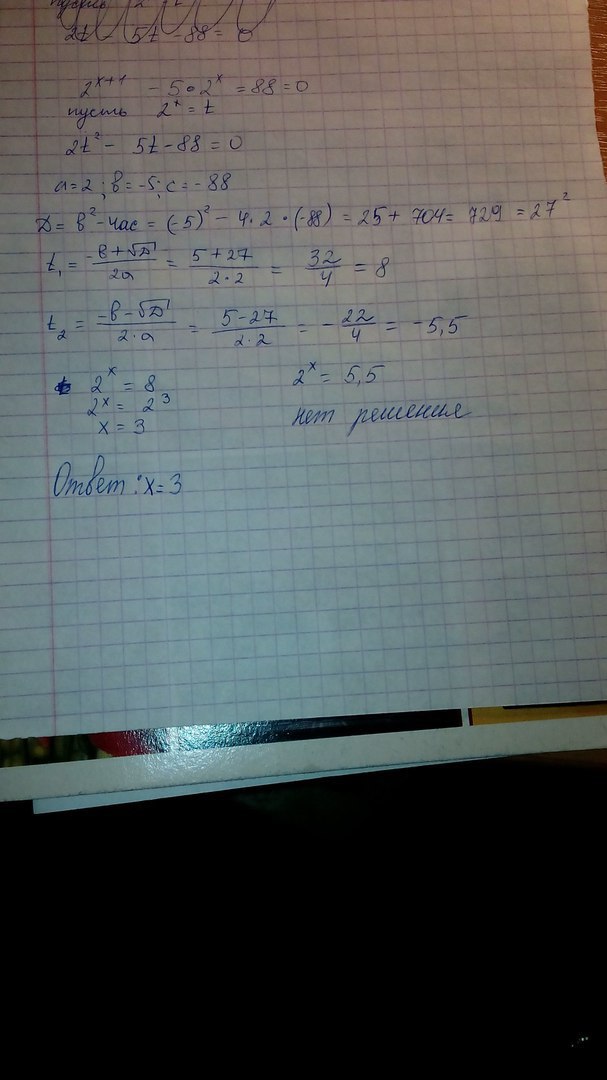 пусть 2
2t 5t - 88 = 0
2^(x+1) - 5 • 2^x = 88 = 0
пусть 2^x = t
2t² - 5t - 88 = 0
a = 2 ; в = -5 ; c = -88
Д = в² - 4ac = (-5)² - 4 · 2 · (-88) = 25 + 704 = 729 = 27²
t₁ = (-в + √Д)/(2a) = (5 + 27)/(2 · 2) = 32/4 = 8
t₂ = (-в - √Д)/(2 · a) = (5 - 27)/(2 · 2) = -22/4 = -5,5
2^x = 8 2^x = 5,5
2^x = 2³ нет решения
x = 3
Ответ : x = 3